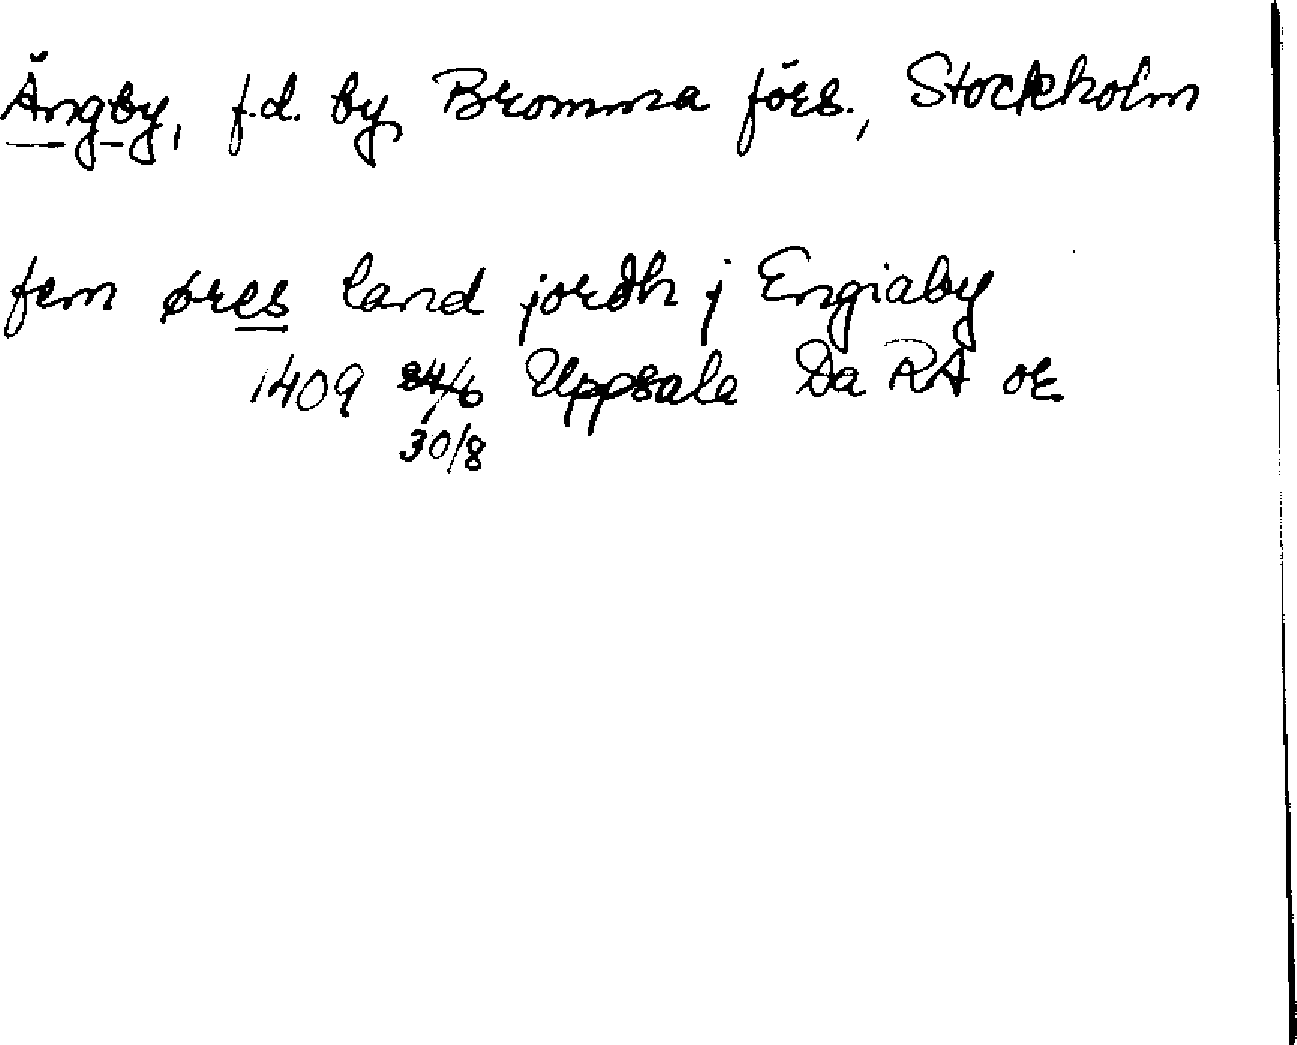 Ängby, f.d. by, Bromma förs., Stockholm
fem øres land jordh j Engiaby
1409 24/6 Uppsala Da RA or.
30/8